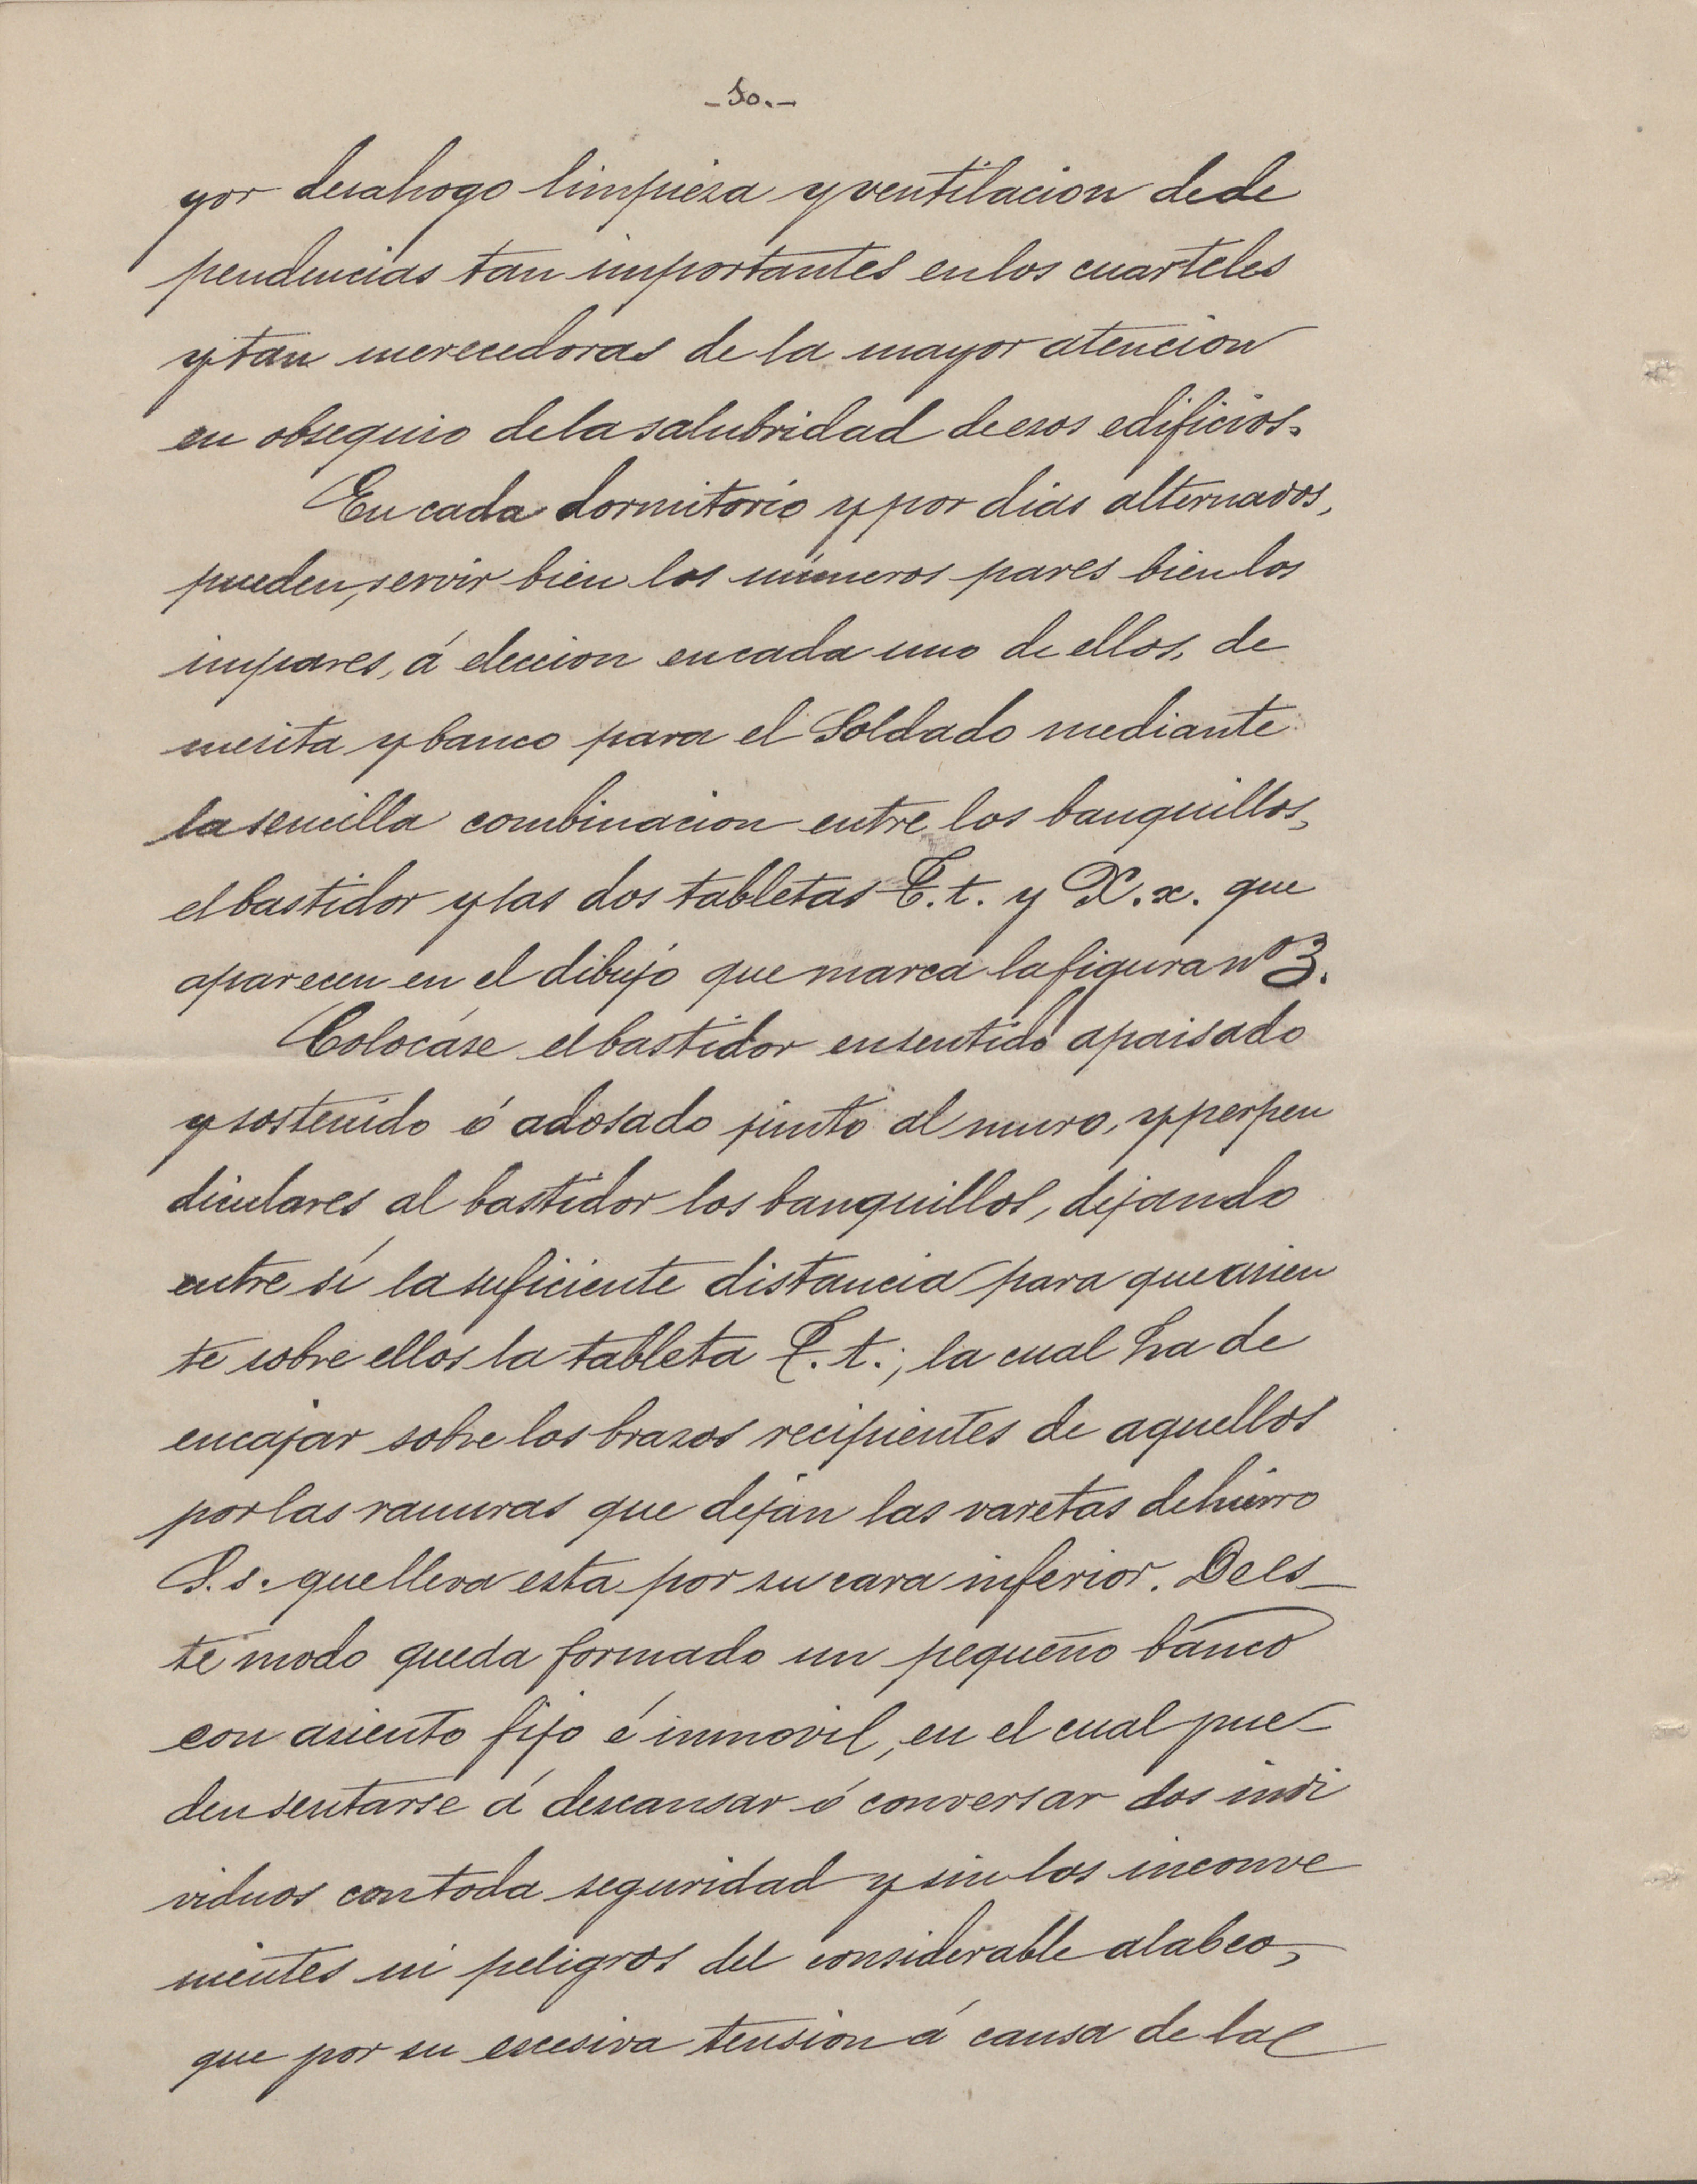 -10.-
yor desahogo limpieza y ventilacion de de
pendencias tan importantes en los cuarteles
y tan merecedoras de la mayor atencion
en obsequio de la salubridad de esos edificios.
En cada dormitorio y por dias alternados,
pueden, servir bien los números pares bien los
impares, á eleccion en cada uno de ellos, de
mesita y banco para el Soldado mediante
la sencilla combinacion entre los banquillos,
el bastidor y las dos tabletas T.t. y X.x. que
aparecen en el dibujo que marca la figura nº 3.
Colocáse el bastidor en sentido apaisado
y sostenido ó adosado junto al muro, y perpen
diculares al bastidor los banquillos, dejando
entre sí la suficiente distancia para que asien
te sobre ellos la tableta T.t.; la cual ha de
encajar sobre los brazos recipientes de aquellos
por las ranuras que dejan las varetas de hierro
S.s. que lleva esta por su cara inferior. De es-
te modo queda formado un pequeño banco
con asiento fijo é inmovil, en el cual pue-
den sentarse á descansar ó conversar dos indi
viduos con toda seguridad y sin los inconve
nientes ni peligros del considerable alabeo,
que por su escesiva tension á causa de la